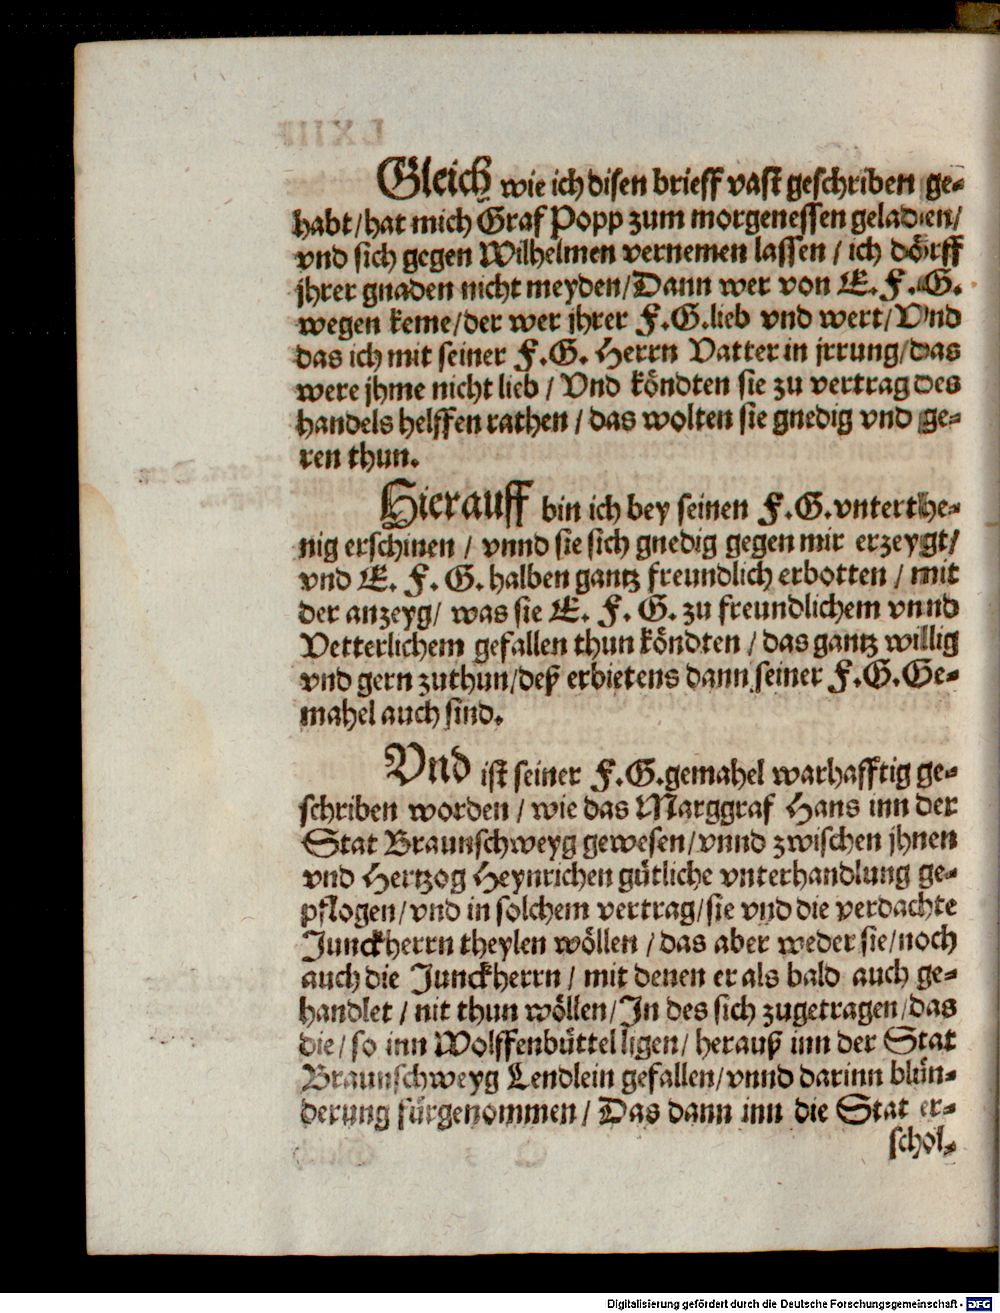 Gleich wie ich disen brieff vast geschriben ge-
habt/hat mich Graf Popp zum morgenessen geladen/
vnd sich gegen Wilhelmen vernemen lassen / ich dörff
jhrer gnaden nicht meyden/Dann wer von E. F. G.
wegen keme/der wer jhrer F. G. lieb vnd wert/Vnd
das ich mit seiner F. G. Herrn Vatter in jrrung/das
were jhme nicht lieb / Vnd köndten sie zu vertrag des
handels helffen rathen / das wolten sie gnedig vnd ge-
ren thun.
Hierauff bin ich bey seinen F. G. vnterthe-
nig erschinen / vnnd sie sich gnedig gegen mir erzeygt/
vnd E. F. G. halben gantz freundlich erbotten / mit
der anzeyg/ was sie E. F. G. zu freundlichem vnnd
Vetterlichem gefallen thun köndten / das gantz willig
vnd gern zuthun/deß erbietens dann seiner F. G. Ge-
mahel auch sind.
Vnd ist seiner F. G. gemahel warhafftig ge-
schriben worden / wie das Marggraf Hans inn der
Stat Braunschweyg gewesen/vnnd zwischen jhnen
vnd Hertzog Heynrichen gütliche vnterhandlung ge-
pflogen/vnd in solchem vertrag/sie vnd die verdachte
Junckherrn theylen wöllen / das aber weder sie/noch
auch die Junckherrn / mit denen er als bald auch ge-
handlet / nit thun wöllen/In des sich zugetragen/das
die/ so inn Wolffenbüttel ligen/ herauß inn der Stat
Braunschweyg Lendlein gefallen/vnnd darinn blün-
derung fürgenommen/ Das dann inn die Stat er-
schol-
Digitalisierung gefördert durch die Deutsche Forschungsgemeinschaft - DFG